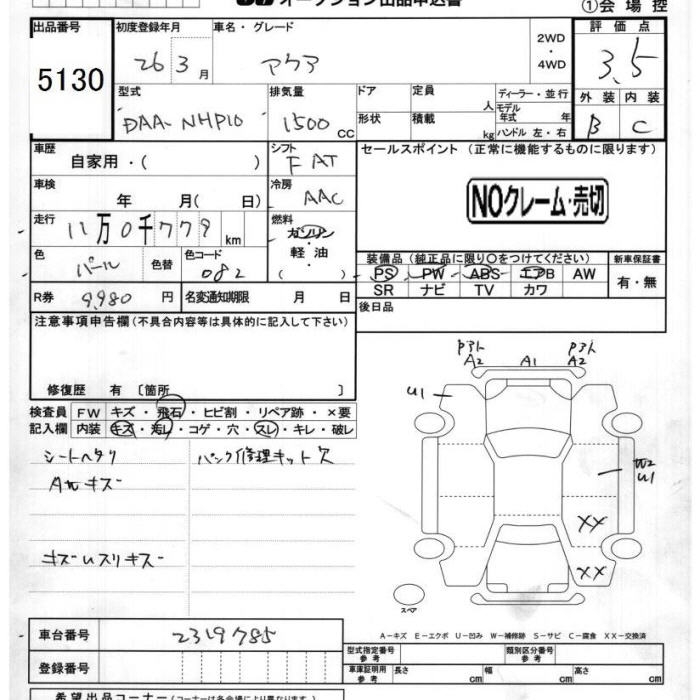 オークション出品申込書
①会場控
出品番号
5130
初度登録年月
26 3 月
車名・グレード
アクア
2WD
・
4WD
評価点
3.5
外装 内装
B C
型式
DAA-NHP10
排気量
1500 CC
ドア
形状
定員 人
積載 kg
ディーラー・並行
モデル年式 年
ハンドル 左・右
車歴
自家用・( )
シフト
F AT
車検
年 月(日)
冷房
AAC
走行
11万0千779 km
燃料
ガソリン
軽油
( )
色
パール
色替
色コード
082
R券
9,980 円
名変通知期限 月 日
セールスポイント(正常に機能するものに限ります)
NOクレーム・売切
装備品(純正品に限り○をつけてください)
PS PW ABS エアB AW
SR ナビ TV カワ
新車保証書
有・無
後日品
注意事項申告欄(不具合内容等は具体的に記入して下さい)
修復歴 有〔箇所 〕
検査員
記入欄
FW キズ・飛石・ヒビ割・リペア跡・×要
内装 キズ・汚レ・コゲ・穴・スレ・キレ・破レ
シートヘタリ
パンク修理キット欠
キズUスリキズ
A2 A1 A2
U1
W2
U1
XX
XX
スペア
A-キズ E-エクボ U-凹み W-補修跡 S-サビ C-腐食 XX-交換済
車台番号
2319785
登録番号
型式指定番号
参考
類別区分番号
参考
車庫証明用
参考
長さ cm 幅 cm 高さ cm
希望出品コーナー(コーナーは各会場により異なります)